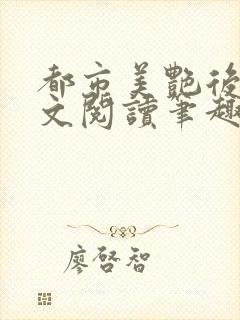 都市美艷後
文閱讀筆趣
廖啓智